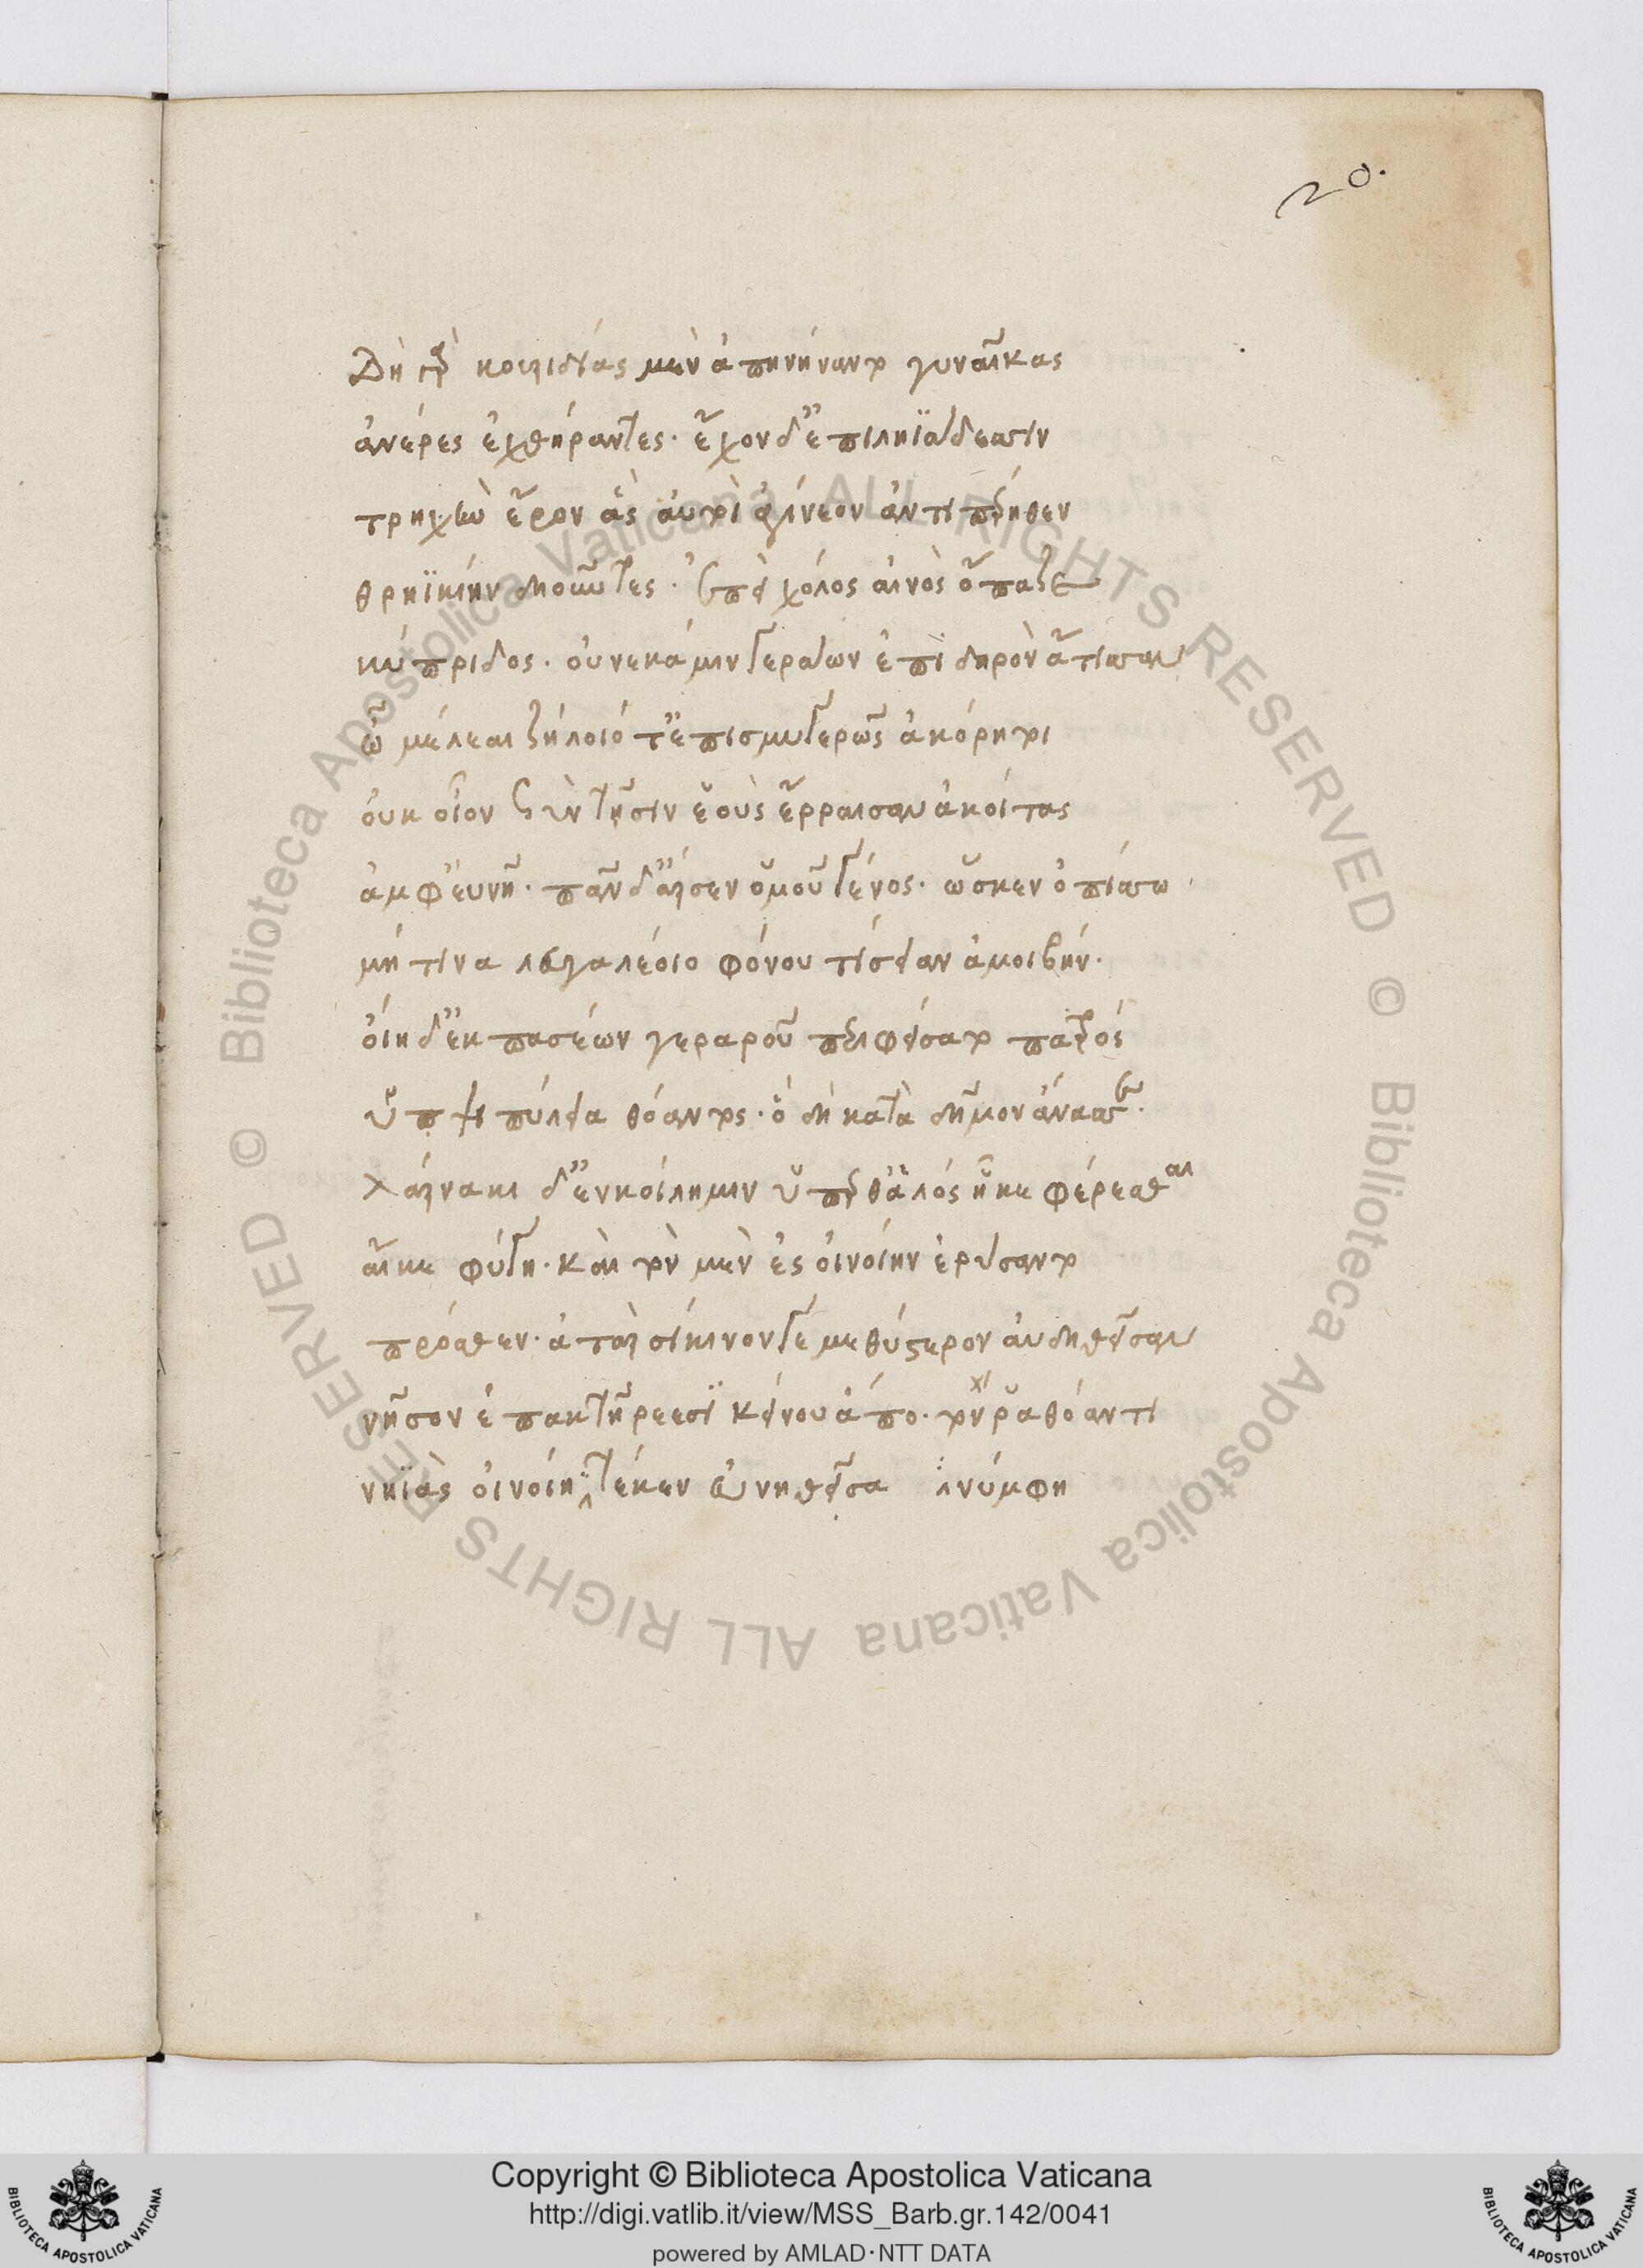 Δὴ γὰρ κουριδίας μὲν ἀπηνήναντο γυναῖκας
ἀνέρες ἐχθήραντες· ἔχον δ' ἐπιληϊάδεσσιν
τρηχὺν ἔρον ἃς ἀυτοὶ ἀγίνεον ἀντιπέρηθεν
θρηϊκίην δηοῦντες· ἐπεὶ χόλος αἰνὸς ὄπαζεν
κύπριδος· οὑνεκά μιν γεράων ἐπὶ δηρὸν ἄτισσαν
ὦ μέλεαι ζήλοιό τ' ἐπισμυγερῶς ἀκόρητοι
ὀυκ οἶον σὺν τῆσιν ἑοὺς ἔρραισαν ἀκοίτας
ἀμφ' ἐυνῆ· πᾶν δ' ἄρσεν ὁμοῦ γένος· ὥσκεν ὀπίσσω
μή τινα λευγαλέοιο φόνου τίσειαν ἀμοιβήν·
ὀίη δ' ἐκ πασέων γεραροῦ περιφείσατο πατρός
ὑψιπύλεια θόαντος· ὃ δὴ κατὰ δῆμον ἄνασσε·
λάρνακι δ' ἐνκοίλη μιν ὕπερθ' ἁλός ἧκε φέρεσθαι
αἴ κε φύγη· καὶ τὸν μὲν ἐς ὀινοίην ἐρύσαντο
πρόσθεν· ἀτὰρ σίκινον γε μεθύστερον ἀυδηθεῖσαν
νῆσον ἐπακτῆρεεσϊ κείνου ἄπο· τόν ῥα θόαντι
νηϊὰς ὀινοίη τέκεν ἐυνηθεῖσα νύμφη
20.
Copyright © Biblioteca Apostolica Vaticana
http://digi.vatlib.it/view/MSS_Barb.gr.142/0041
powered by AMLAD·NTT DATA